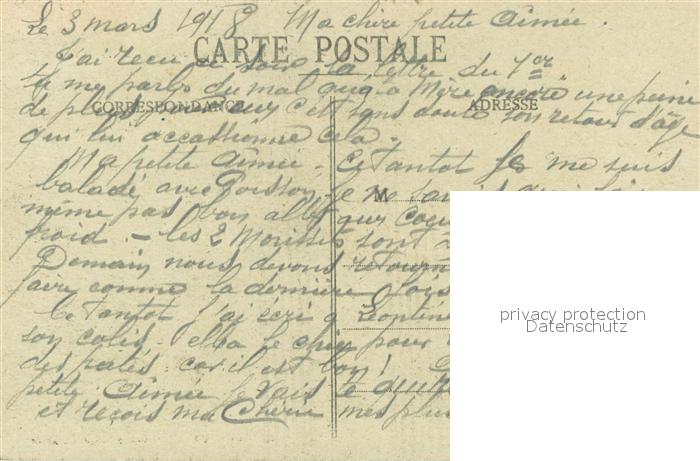 Le 3 mars 1918 Ma chère petite Aimée.
CARTE POSTALE
J'ai reçu ce soir ta lettre du 1er
tu me parles du mal qu'a Mère encore une peine
CORRESPONDANCE
ADRESSE
de plus c'est sans doute son retour d'âge
qui lui occassionne cela.
Ma petite Aimée. Ce Tantot je me suis
baladé avec Poisson, je ne
M
même pas bon
froid. - les 2 sont
Demain nous devons
faire comme la dernière fois
Ce Tantot j'ai écri a
son colis. elle le pour
des patés. car il est bon!
petite Aimée je vais te
et reçois ma Chérie mes plus
privacy protection
Datenschutz